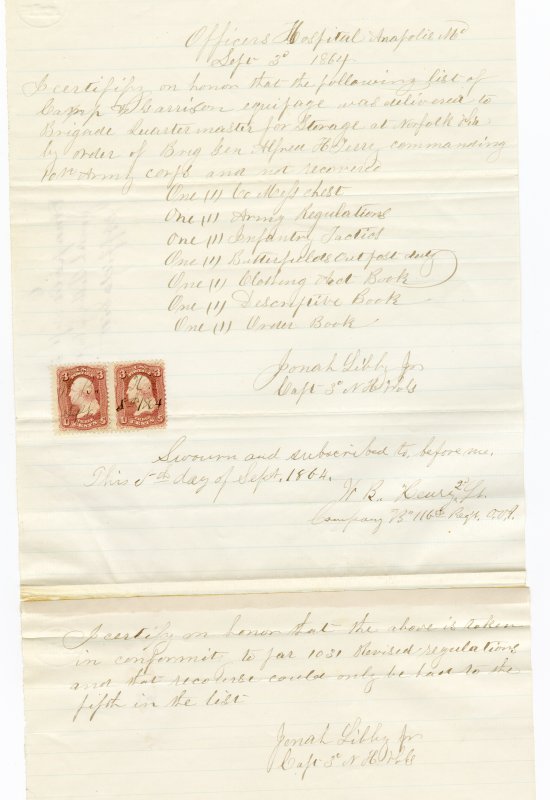 Officers Hospital Anapolis Md
Sept 3d 1864
I certifify on honor that the following list of
Camp & Garrison equipage was delivered to
Brigade Quartermaster for Storage at Norfolk Va
by order of Brig Gen Alfred H Terry commanding
10th Army corps and not recovered
One (1) Co Mess chest
One (1) Army Regulations
One (1) Infantry Tactics
One (1) Butterfields Out post duty
One (1) Clothing Acct Book
One (1) Descriptive Book
One (1) Order Book
Jonah Libby Jr
Capt 3d N H Vols
3 3 3 3
CENTS CENTS
Swourn and subscribed to, before me.
This 5th day of Sept. 1864.
W. B. Henry 2d Lt.
Company "B" 116th Regt. O.V.I.
I certify on honor that the above is taken
in conformity to par 1031 Revised regulations
and that recourse could only be had to the
fifth in the list
Jonah Libby Jr
Capt 3d N H Vols